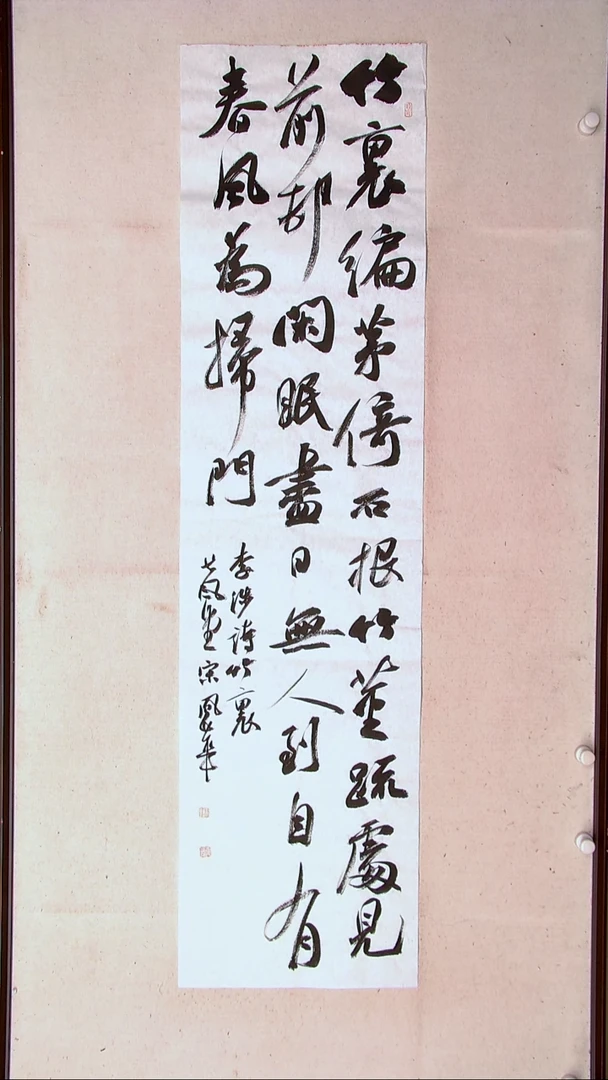 竹裏編茅倚石根竹莖疏處見
前邨閑眠盡日無人到自有
春風為掃門
李涉詩竹裏
堂宋